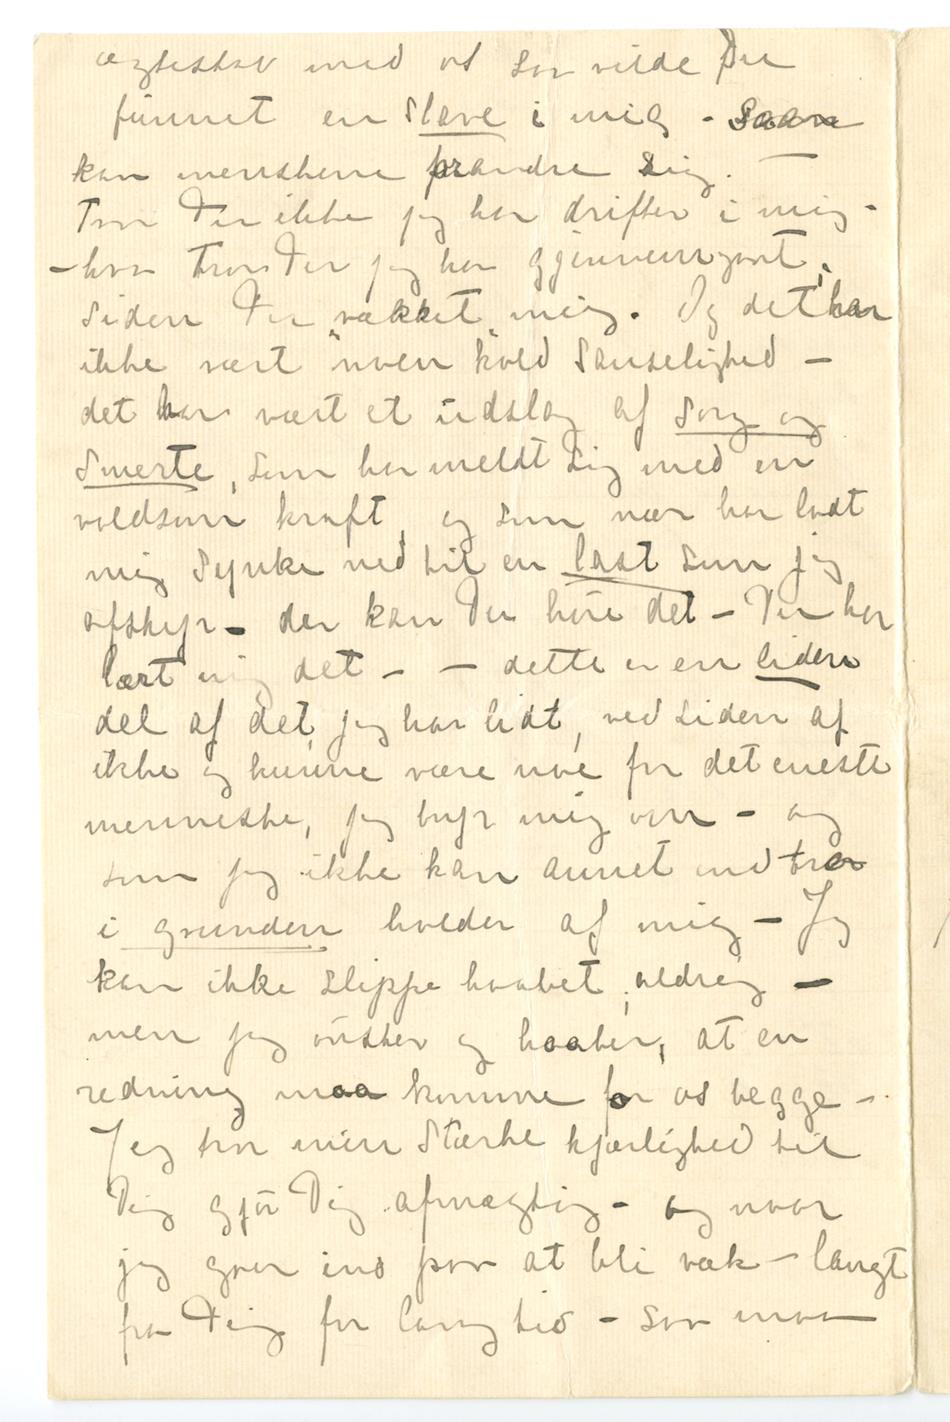 ægteskab med os saa vilde Du
funnet en slave i mig - saan
kan menskene forandre sig. —
Tror Du ikke jeg har drifter i mig -
- hva tror Du jeg har gjennemgaat,
siden Du vækket mig. Og det har
ikke vært "noen kold sanselighed" —
det har vært et udslag af sorg og
smerte, som har meldt sig med en
voldsom kraft, og som nær har ladt
mig synke ned til en last som jeg
afskyr - der kan Du høre det - Du har
lært mig det - — dette er en liden
del af det, jeg har lidt, ved siden af
ikke og kunne være noe for det eneste
menneske, jeg bryr mig om - og
som jeg ikke kan annet end tro
i grunden holder af mig - Jeg
kan ikke slippe haabet, aldrig —
men jeg ønsker og haaber, at en
redning maa komme for os begge -
Jeg tror min stærke kjærlighed til
Dig gjør Dig afmægtig - og naar
jeg gaar ind paa at bli væk - langt
fra Dig for lang tid - saa maa